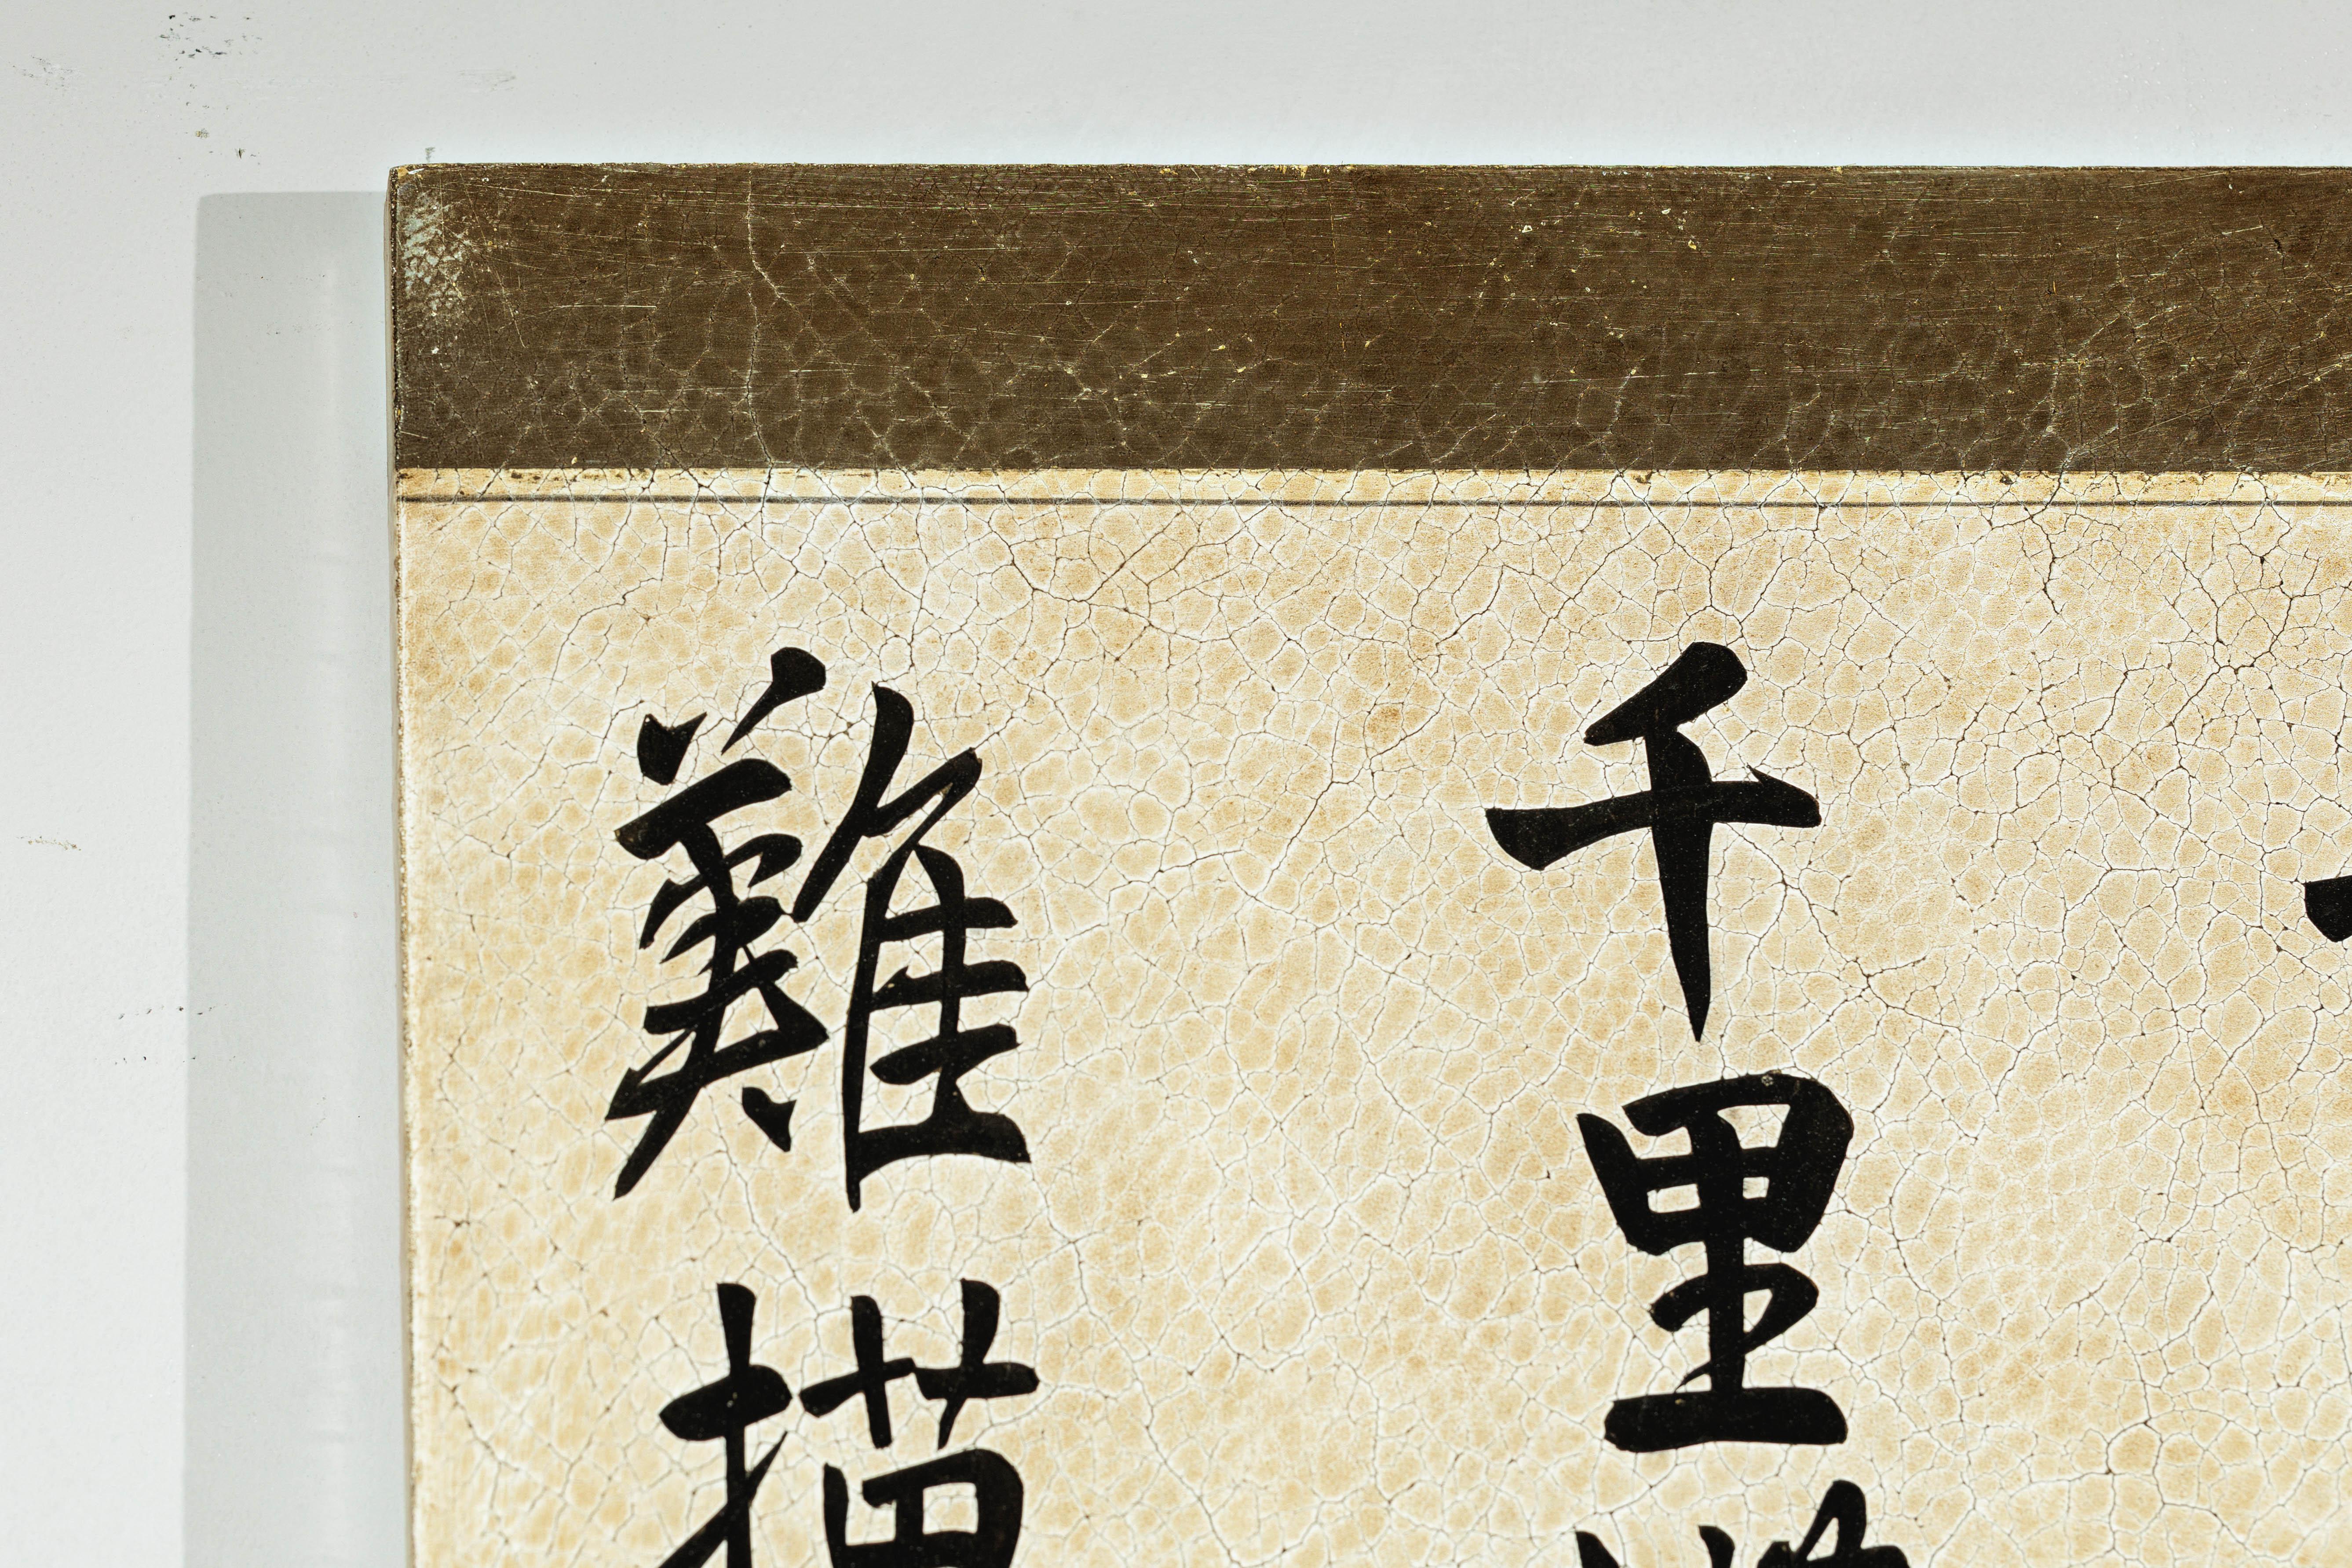 千里
難描